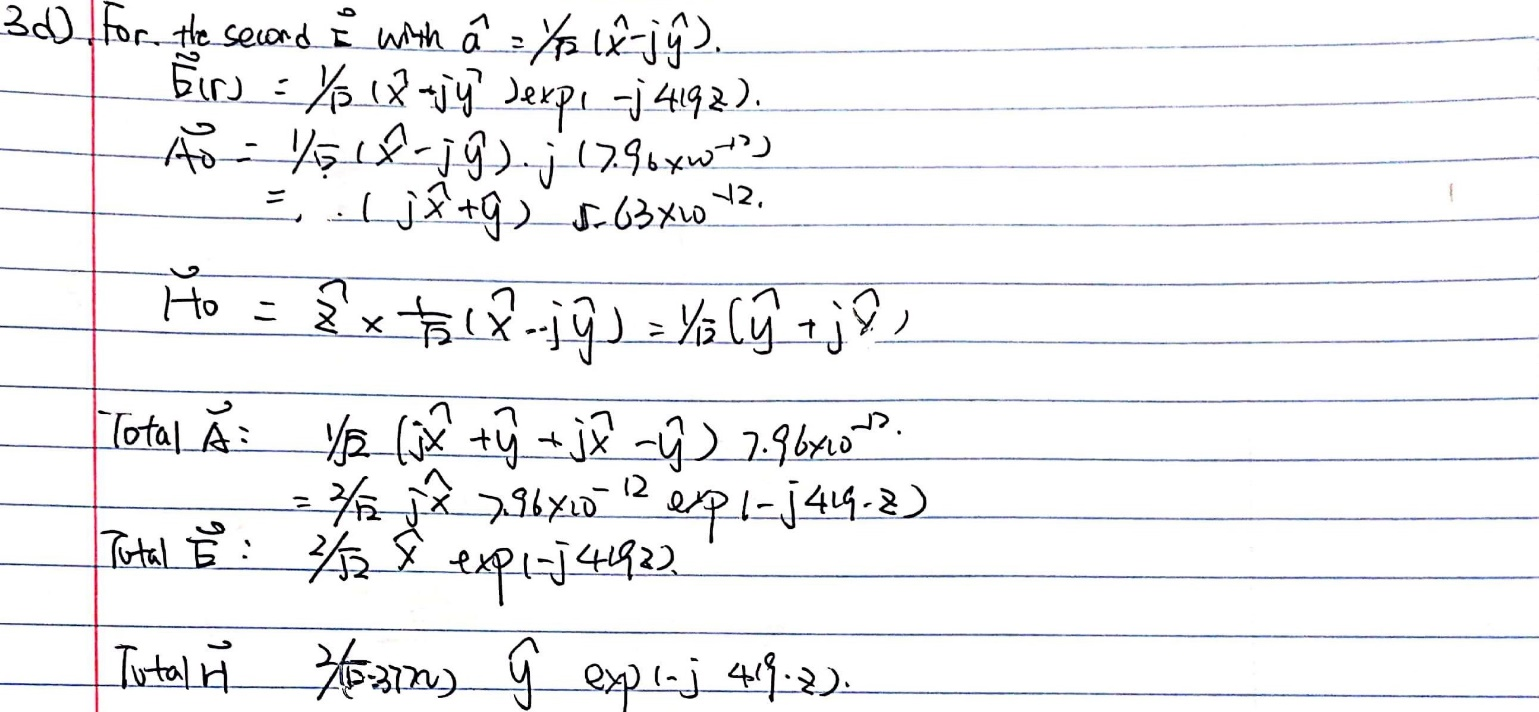 3d). For. the second E⃗ with â = 1/√2 (x̂-jŷ).
E⃗(r) = 1/√2 (x̂-jŷ) exp(-j 419z).
A⃗o = 1/√2 (x̂-jŷ). j (7.96×10⁻¹²)
= . (jx̂+ŷ) 5.63×10⁻¹².
H⃗o = ẑ × 1/√2 (x̂-jŷ) = 1/√2 (ŷ + jx̂)
Total A⃗: 1/√2 (jx̂ +ŷ + jx̂ -ŷ) 7.96×10⁻¹².
= 2/√2 jx̂ 7.96×10⁻¹² exp(-j419.z)
Total E⃗: 2/√2 x̂ exp(-j419z).
Total H⃗ 2/(√2·377) ŷ exp(-j 419.z).